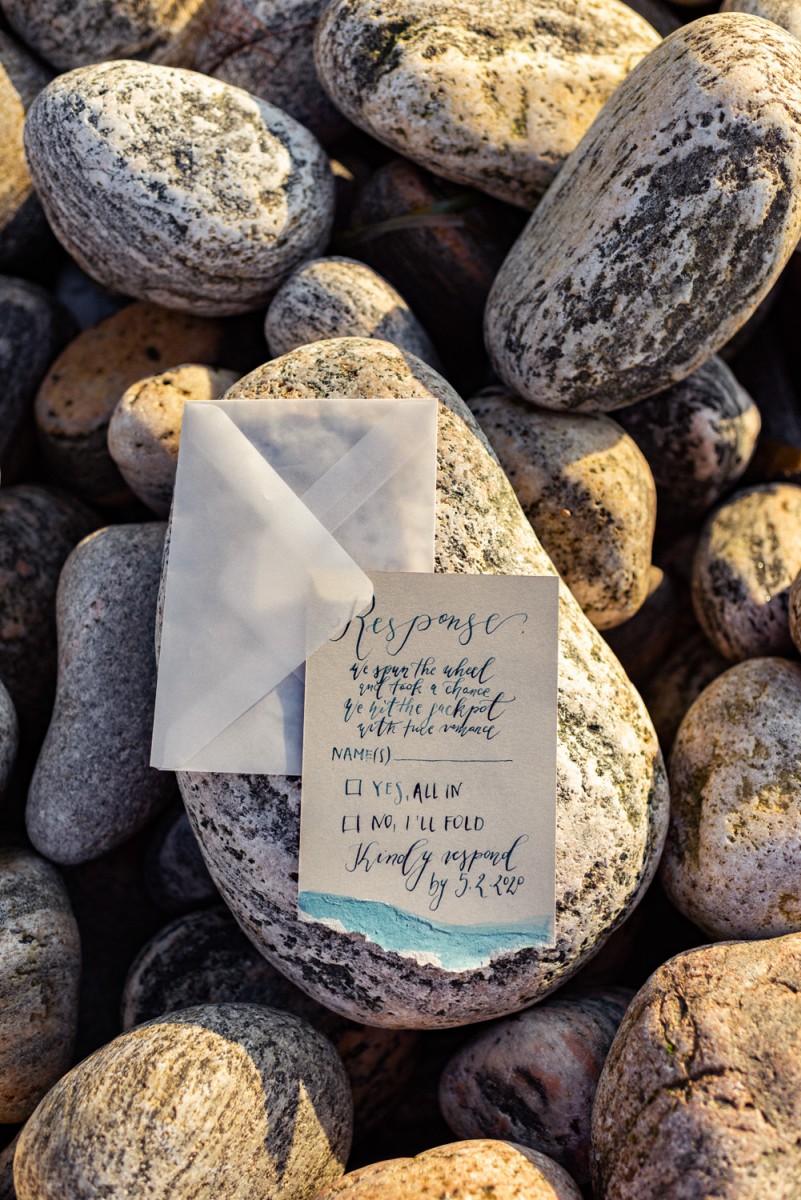 Response
we spun the wheel
and took a chance
we hit the jackpot
with true romance
NAME(S)
YES, ALL IN
NO, I'LL FOLD
Kindly respond
by 5.2.2020